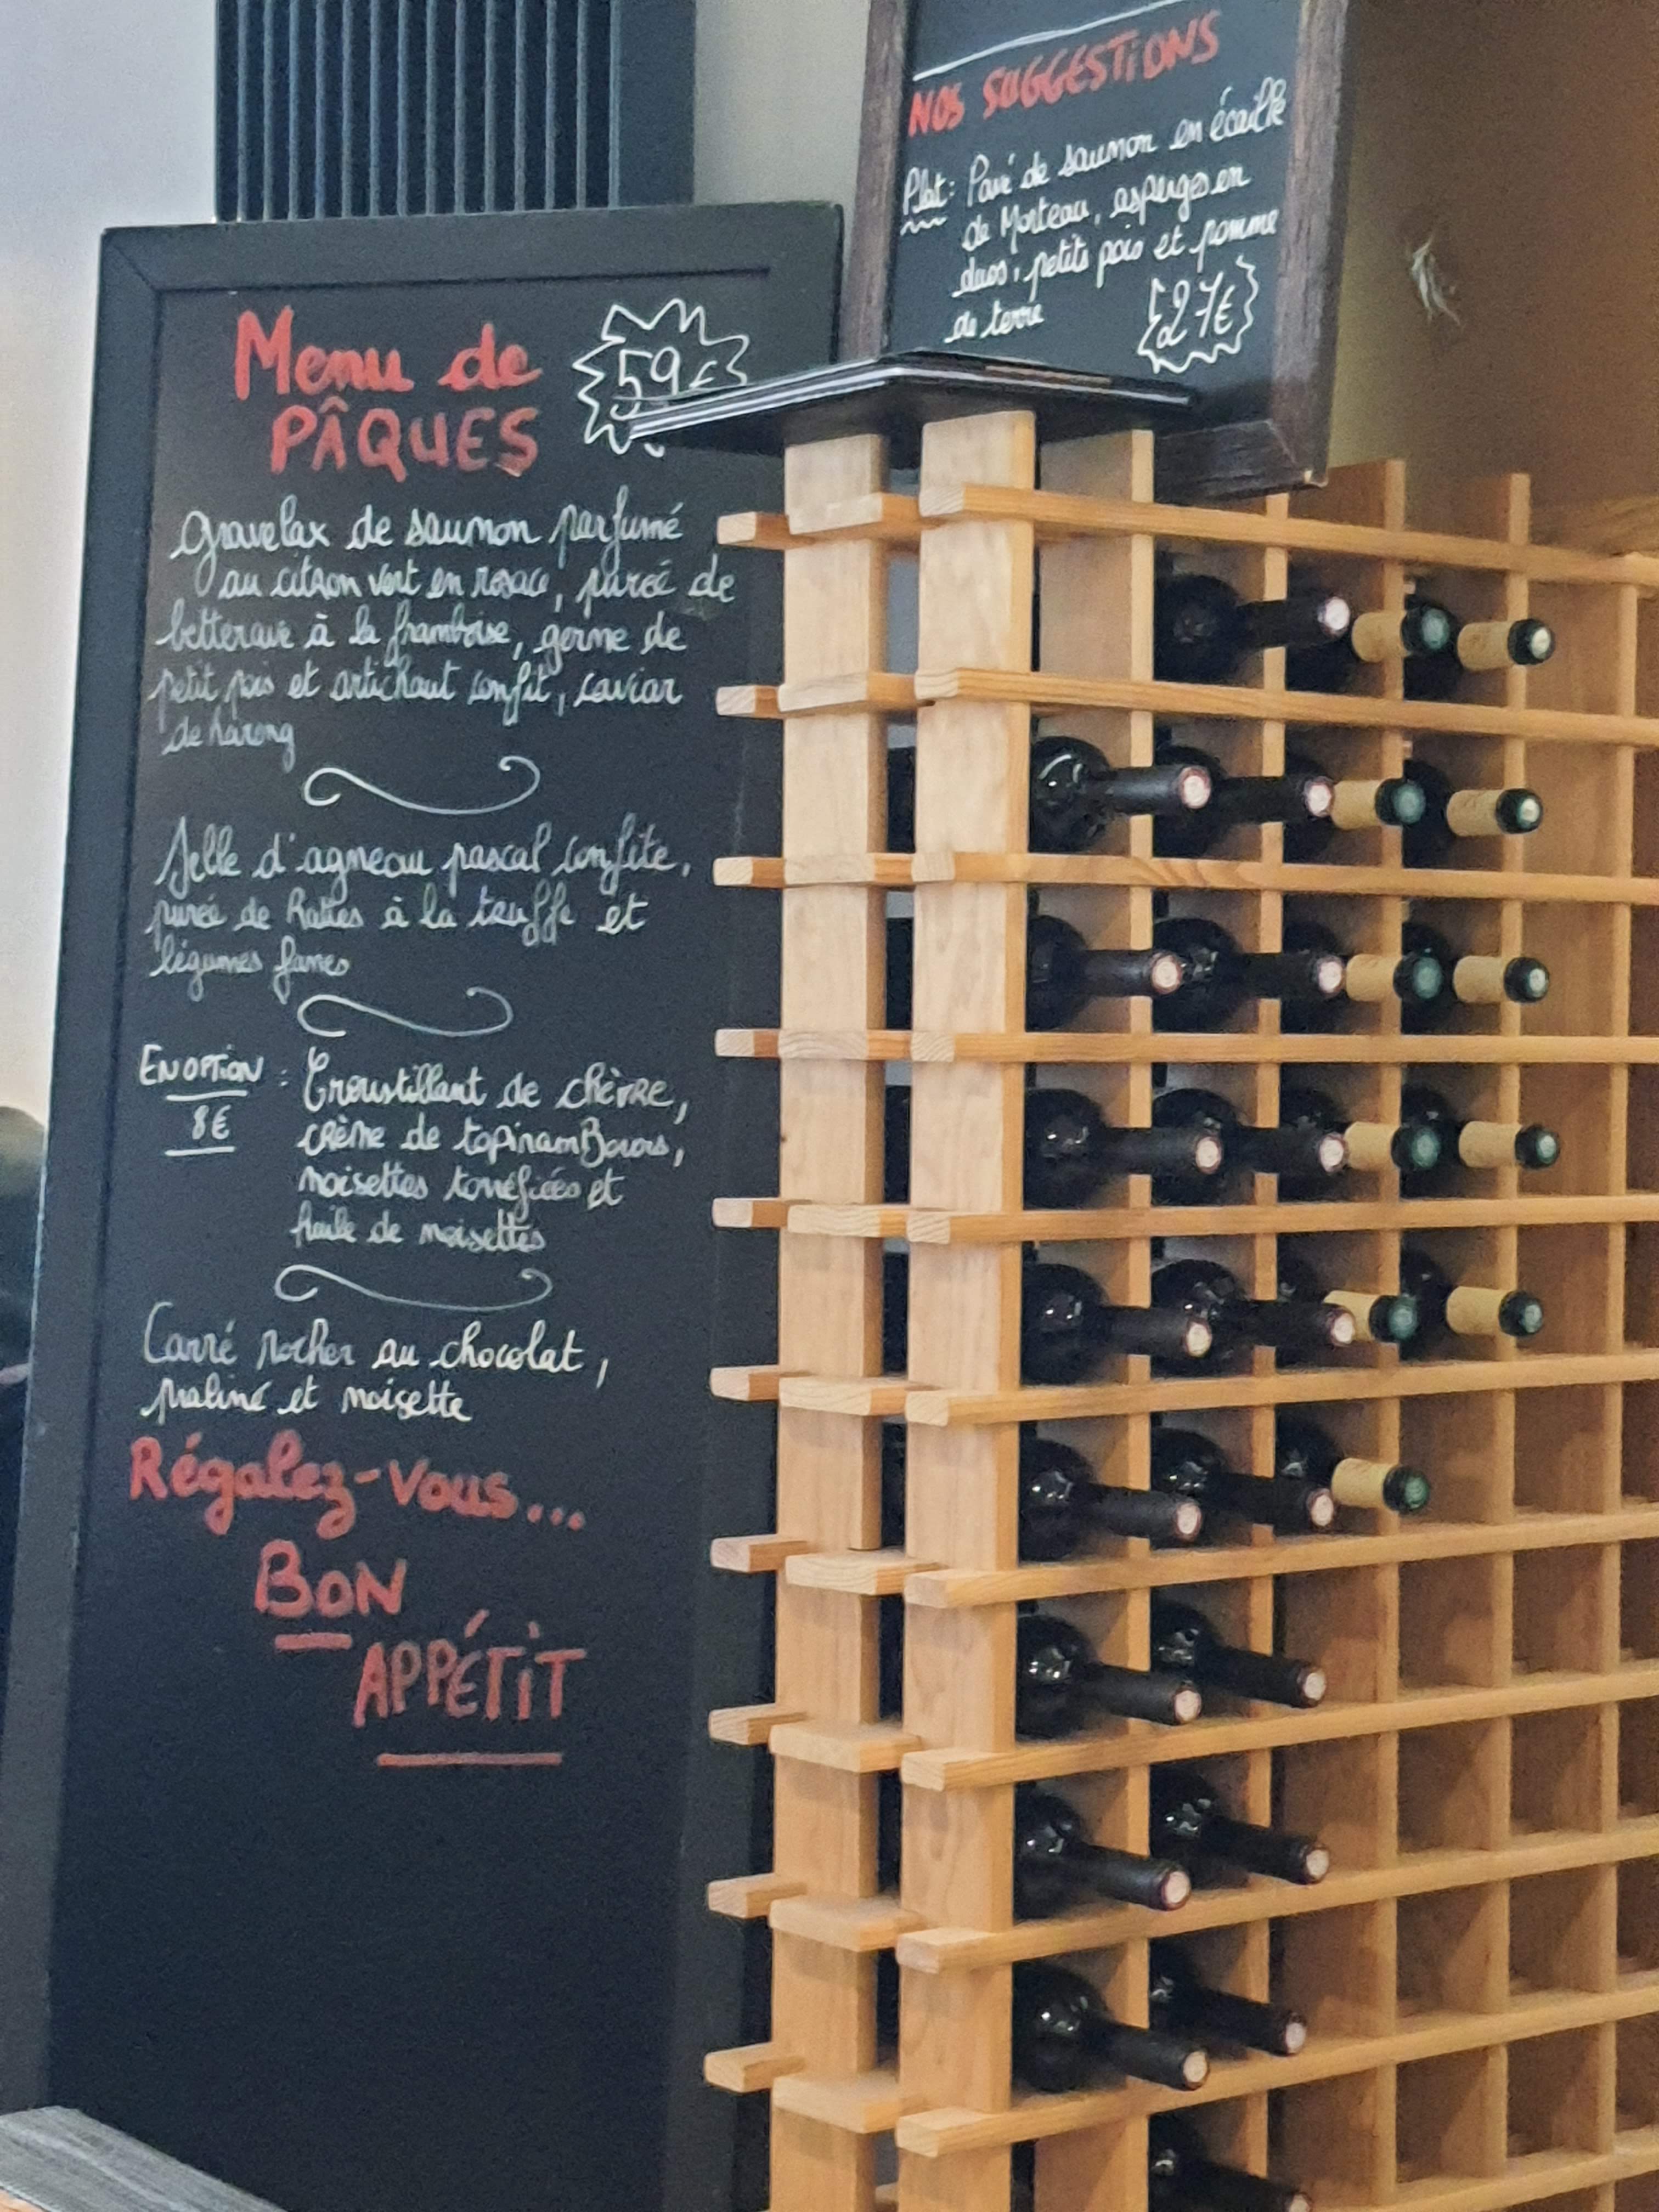 Menu de
PÂQUES
59€
Gravelax de saumon parfumé
au citron vert en rosace, purée de
betterave à la framboise, germe de
petit pois et artichaut confit, caviar
de hareng
Selle d'agneau pascal confite,
purée de Rattes à la truffe et
légumes fanes
EN OPTION :
8€
Croustillant de chèvre,
crème de topinamBours,
noisettes torréfiées et
huile de noisettes
Carré rocher au chocolat,
praliné et noisette
Régalez-vous...
BON
APPÉTIT
NOS SUGGESTIONS
Plat: Pavé de saumon en écaille
de Morteau, asperges en
duos, petits pois et pomme
de terre
27€